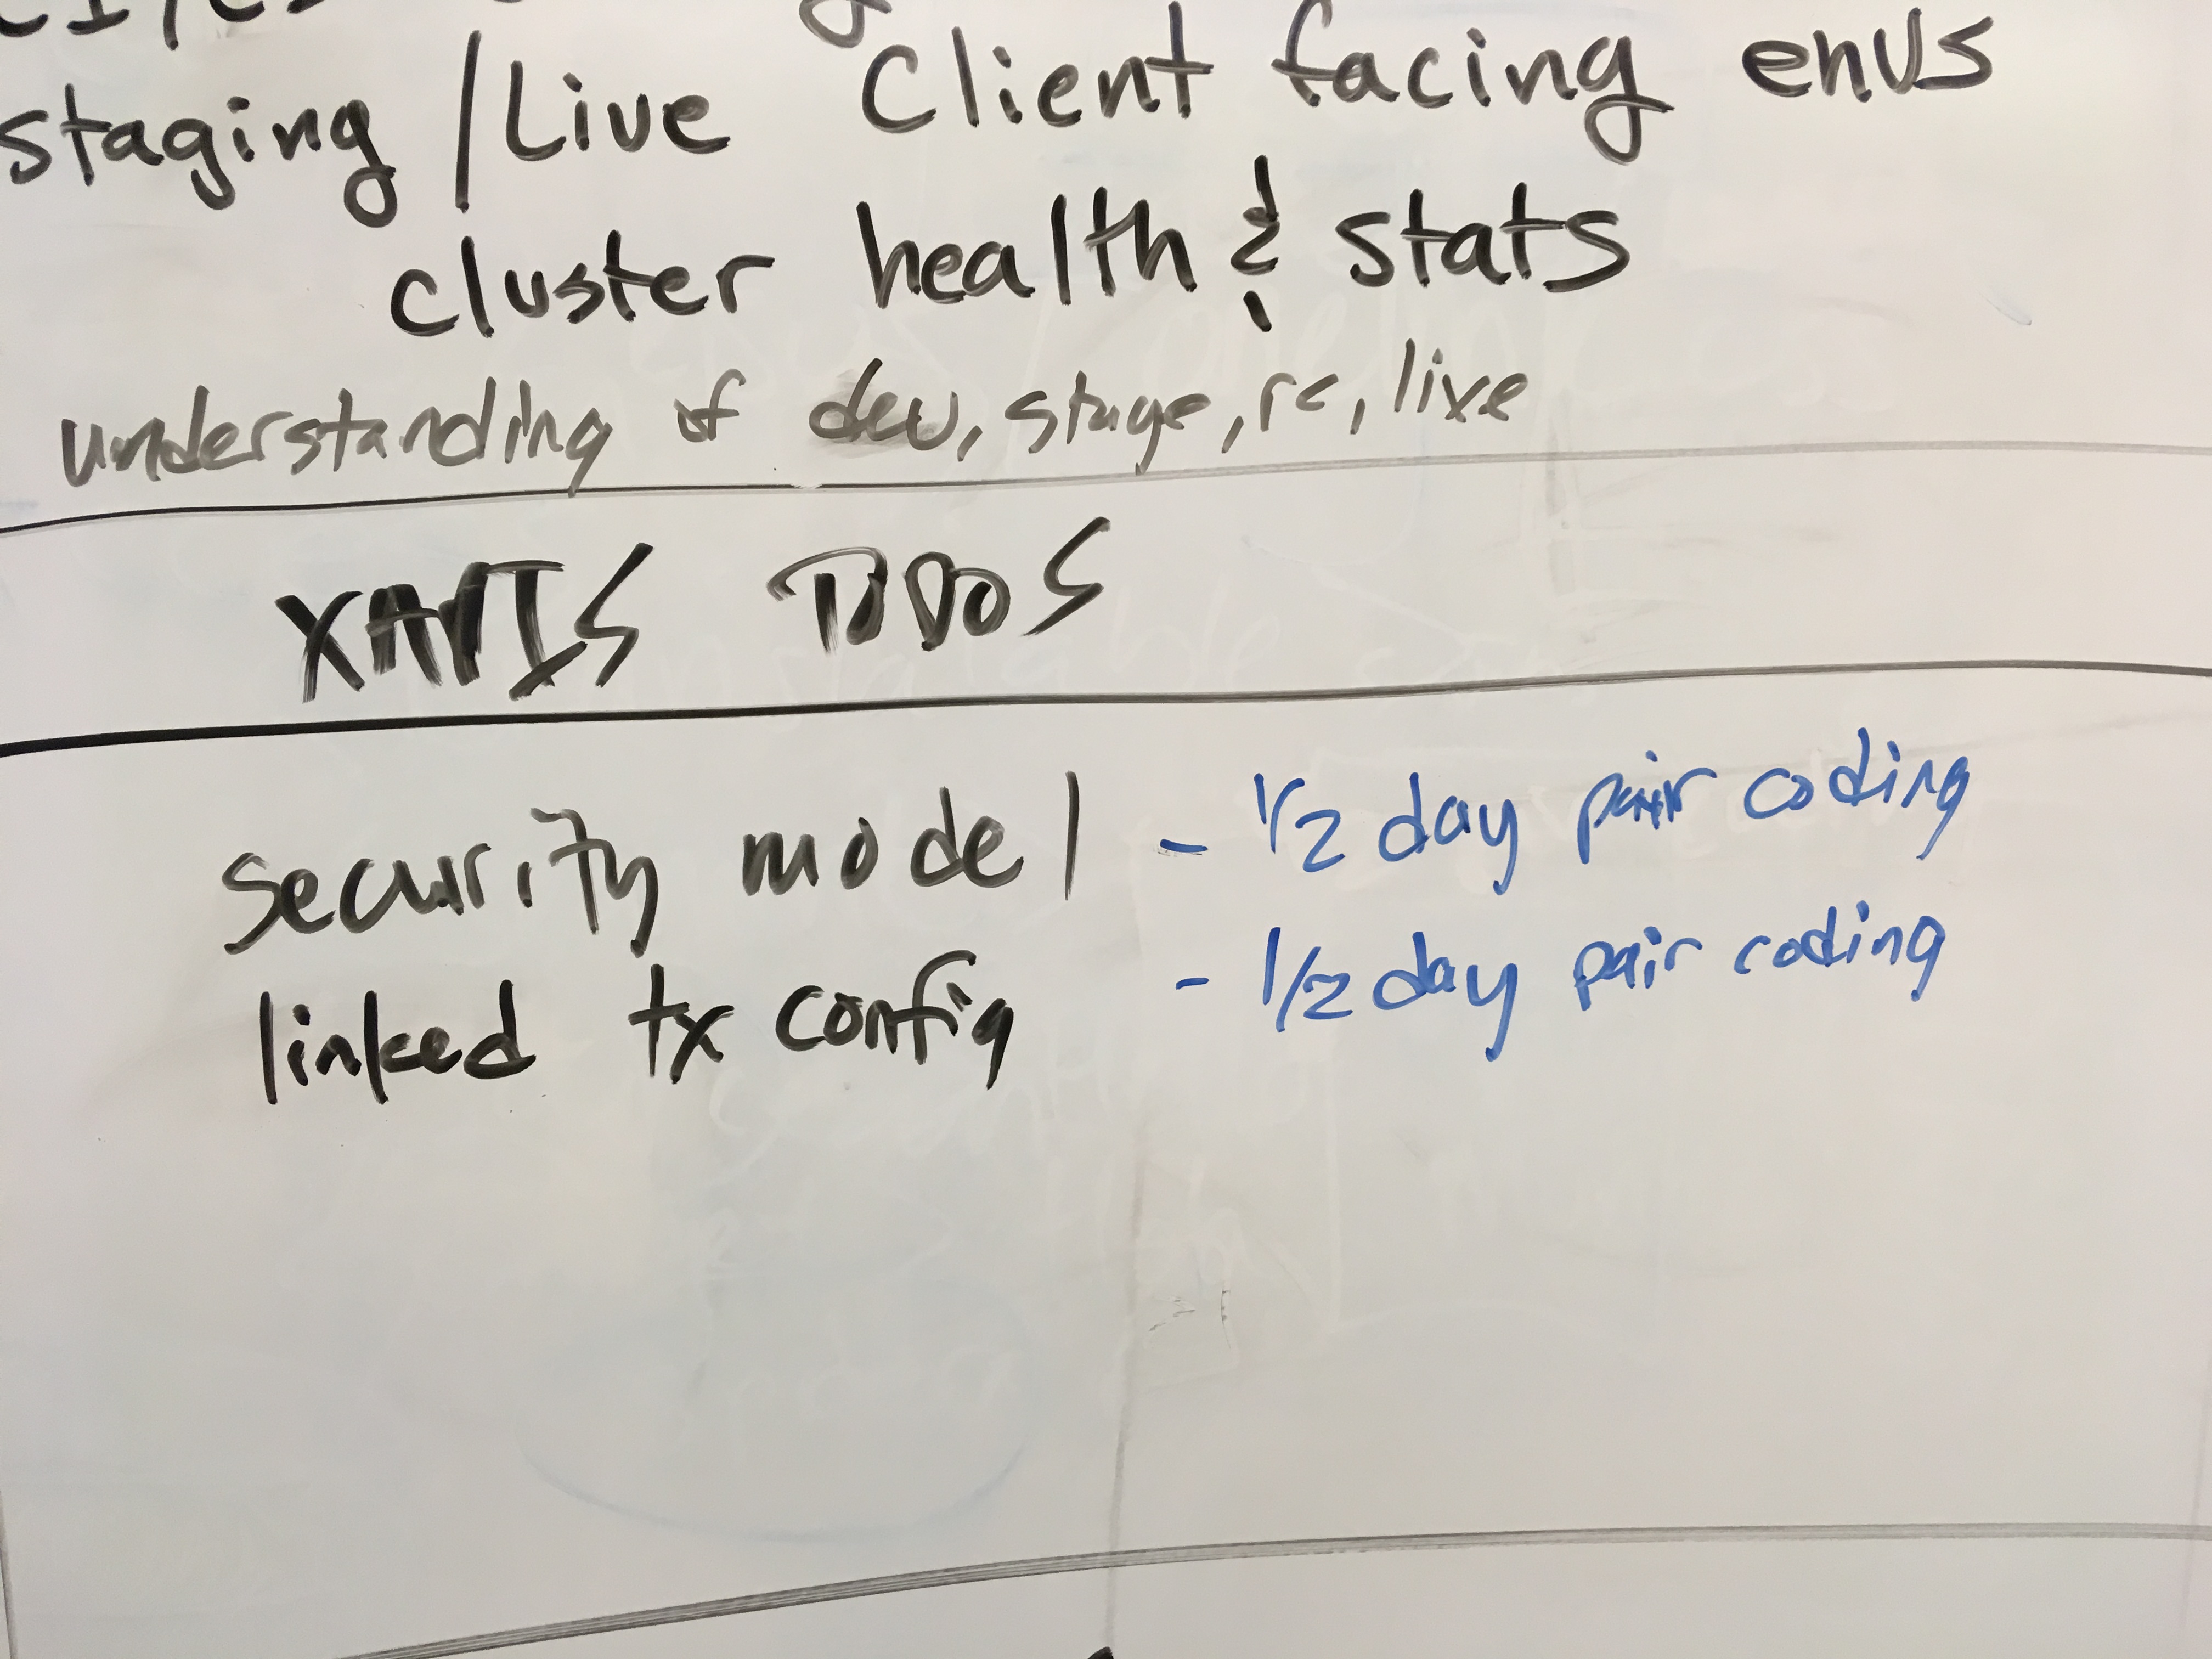 staging / Live Client facing envs
cluster health & stats
understanding of dev, stage, rc, live
XAPIS TODOS
security model - 1/2 day pair coding
linked tx config - 1/2 day pair coding